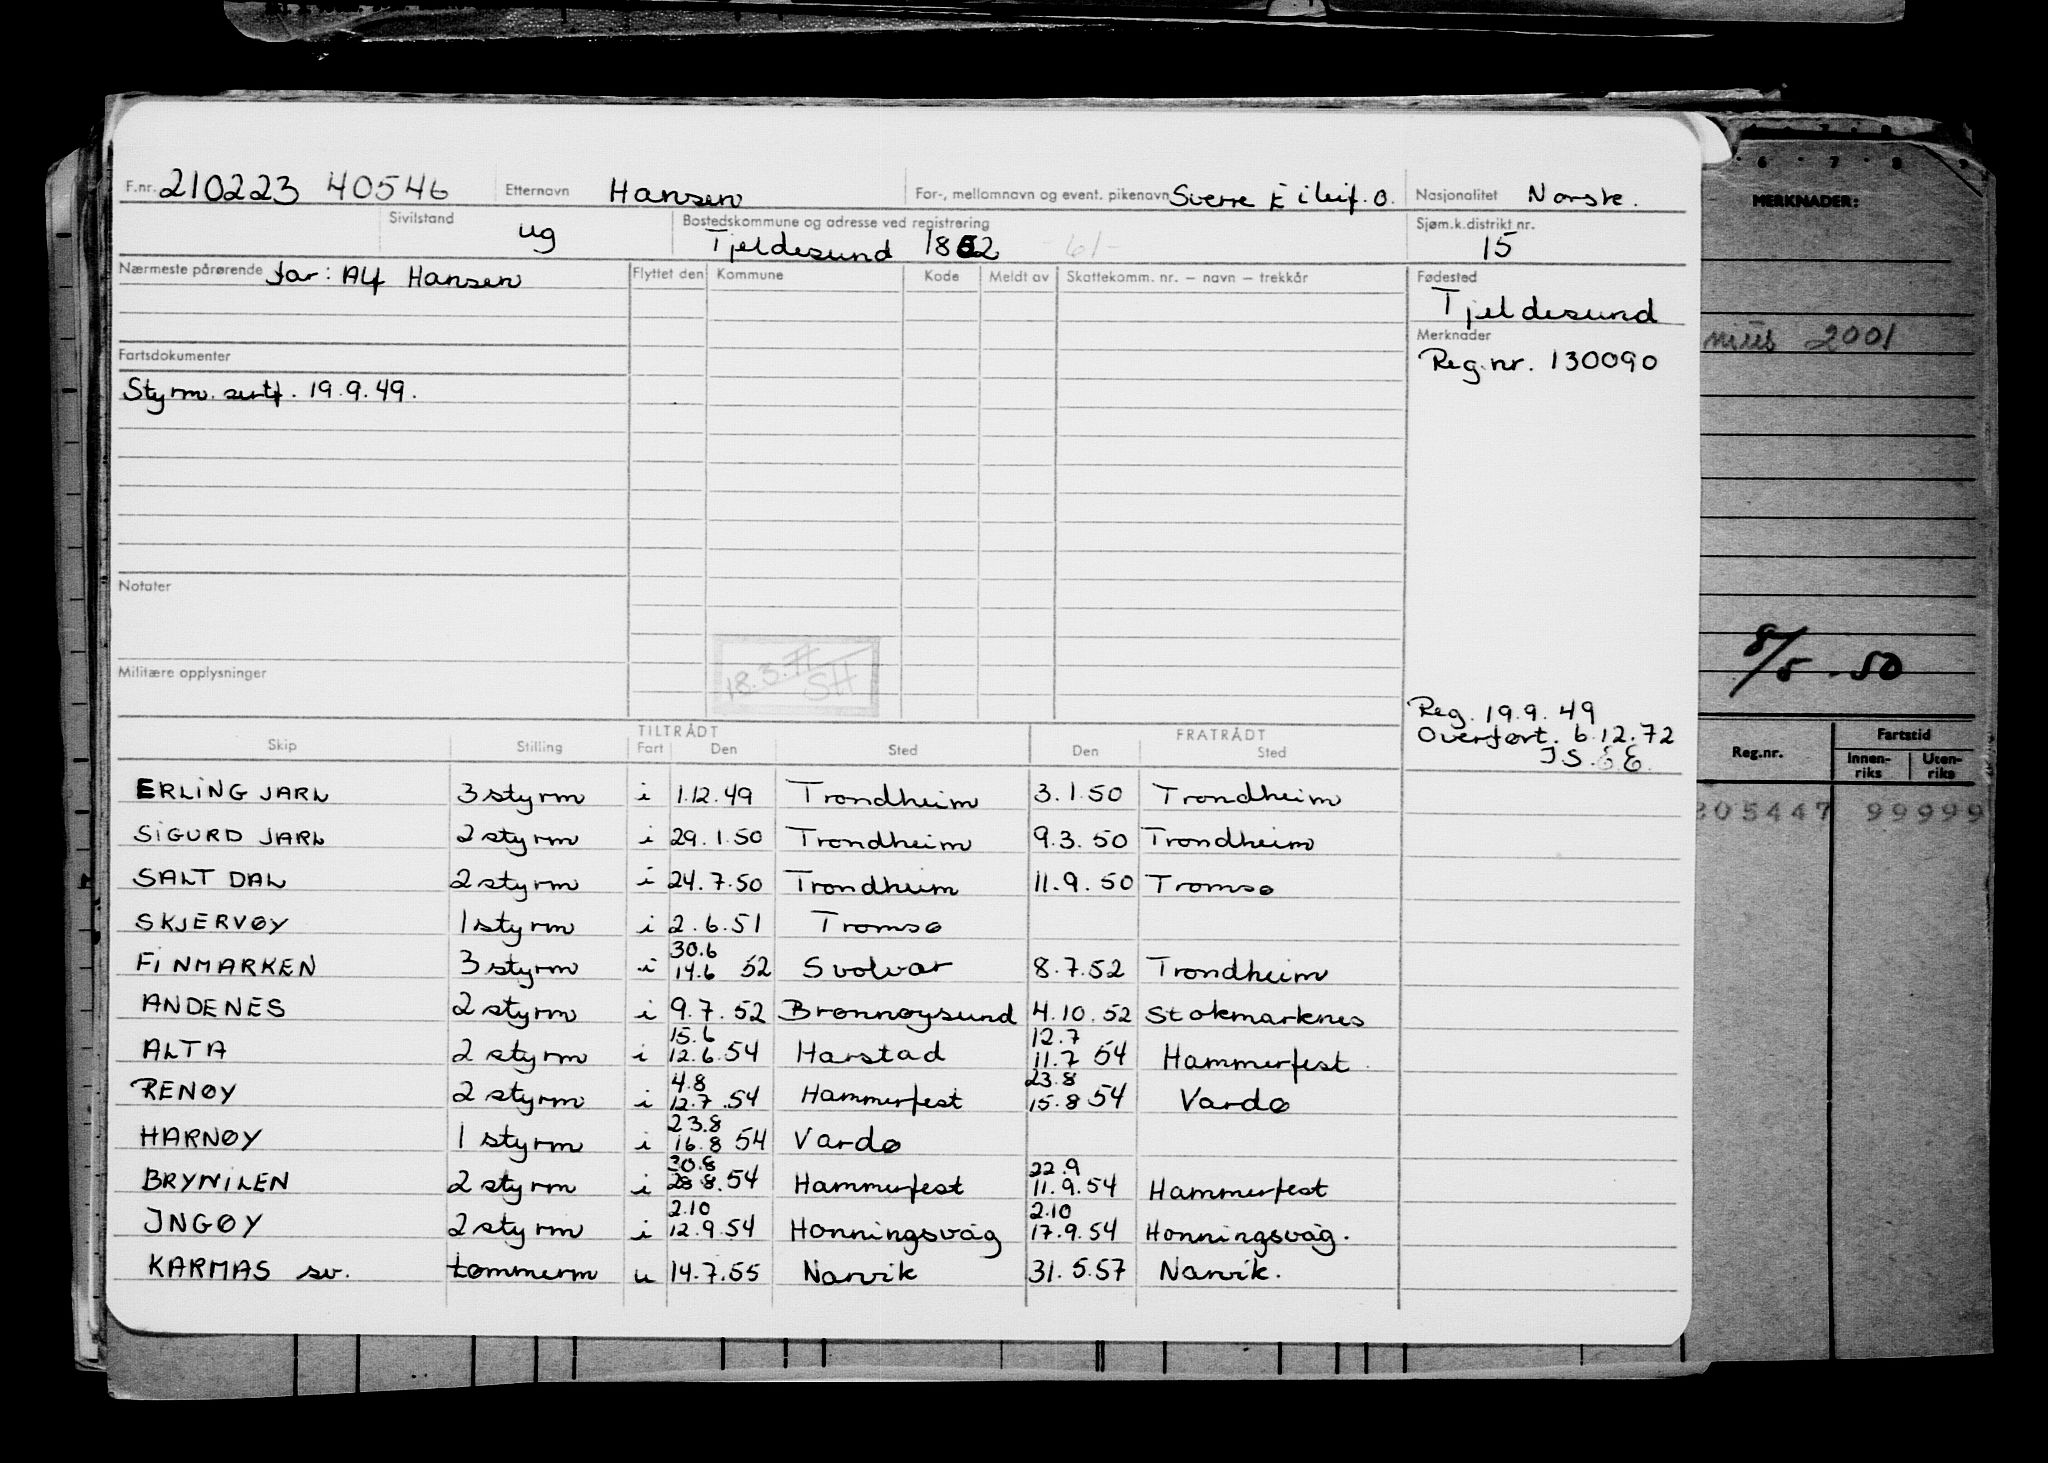 F.nr. 210223 40546 Etternavn Hansen For-, mellomnavn og event. pikenavn Sverre Eileif. O. Nasjonalitet Norske.
Sivilstand ug Bostedskommune og adresse ved registrering Tjeldesund 1852 -61- Sjøm.k.distrikt nr. 15
Nærmeste pårørende far: Alf Hansen Flyttet den Kommune Kode Meldt av Skattekomm. nr. – navn – trekkår Fødested
Tjeldesund
Merknader
Reg.nr. 130090
Fartsdokumenter
Styrm. sertf. 19.9.49.
Notater
Militære opplysninger
18.3.77
SH
Reg. 19.9.49
Overført. 6.12.72
TILTRÅDT FRATRÅDT
Skip Stilling Fart Den Sted Den Sted
ERLING JARL 3 styrm i 1.12.49 Trondheim 3.1.50 Trondheim
SIGURD JARL 2 styrm i 29.1.50 Trondheim 9.3.50 Trondheim
SALTDAL 2 styrm i 24.7.50 Trondheim 11.9.50 Tromsø
SKJERVØY 1 styrm i 2.6.51 Tromsø
30.6
FINMARKEN 3 styrm i 14.6 52 Svolvær 8.7.52 Trondheim
ANDENES 2 styrm i 9.7.52 Brønnøysund 4.10.52 Stokmarknes
15.6 12.7
ALTA 2 styrm i 12.6.54 Harstad 11.7 54 Hammerfest
4.8 23.8
RENØY 2 styrm i 12.7.54 Hammerfest 15.8 54 Vardø
23.8
HARNØY 1 styrm i 16.8 54 Vardø
30.8 22.9
BRYNILEN 2 styrm i 28.8.54 Hammerfest 11.9.54 Hammerfest
2.10 2.10
INGØY 2 styrm i 12.9.54 Honningsvåg 17.9.54 Honningsvåg.
KARMAS sv. tømmerm u 14.7.55 Narvik 31.5.57 Narvik.
6 7 8 9
MERKNADER:
2001
8/5 - 50
Reg.nr. Fartstid
Innen-riks Uten-riks
205447 99999